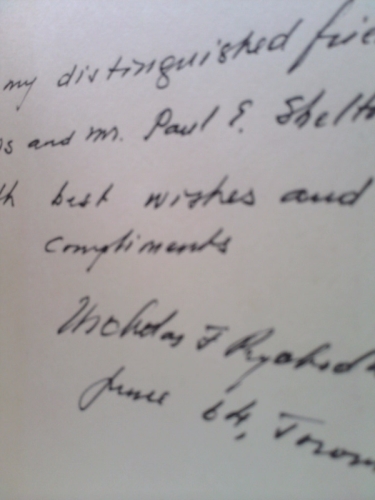 my distinguished frie
s and Mr. Paul E. Shelto
th best wishes and
compliments
Nicholas F
June 64, Toron